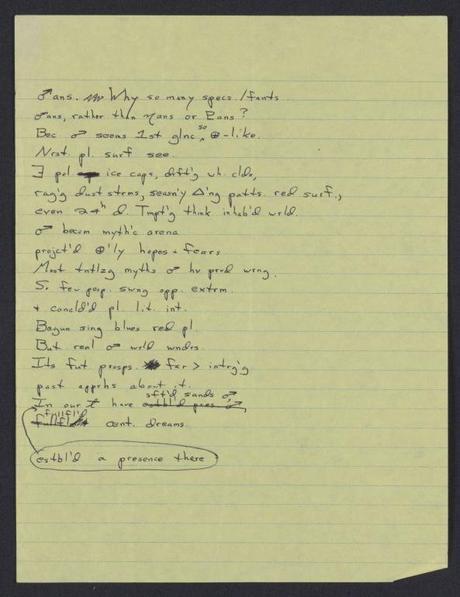 ♂ans. Why so many specs./fants
♂ans, rather than ♄ans or ♇ans?
Bec ♂ seems 1st glnc, so ⊕-like.
Nrst pl. surf see.
∃ pol ice caps, drft'g wh. clds,
rag'g dust strms, seasn'y Δ'ng patts. red surf.,
even 24h d. Tmpt'g think inhab'd wrld.
♂ becom myth'c arena
projct'd ⊕'ly hopes + fears
Most tntlzg myths ♂ hv prvd wrng.
S. few peop. swng opp. extrm.
+ concld'd pl. lit. int.
Begun sing blues red pl.
But real ♂ wrld wndrs.
Its fut prosps. far > intrg'g
past apprhs about it.
sft'd sands ♂,
In our t have estbl'd pres ♂
fulfl'd cent. dreams.
estbl'd a presence there